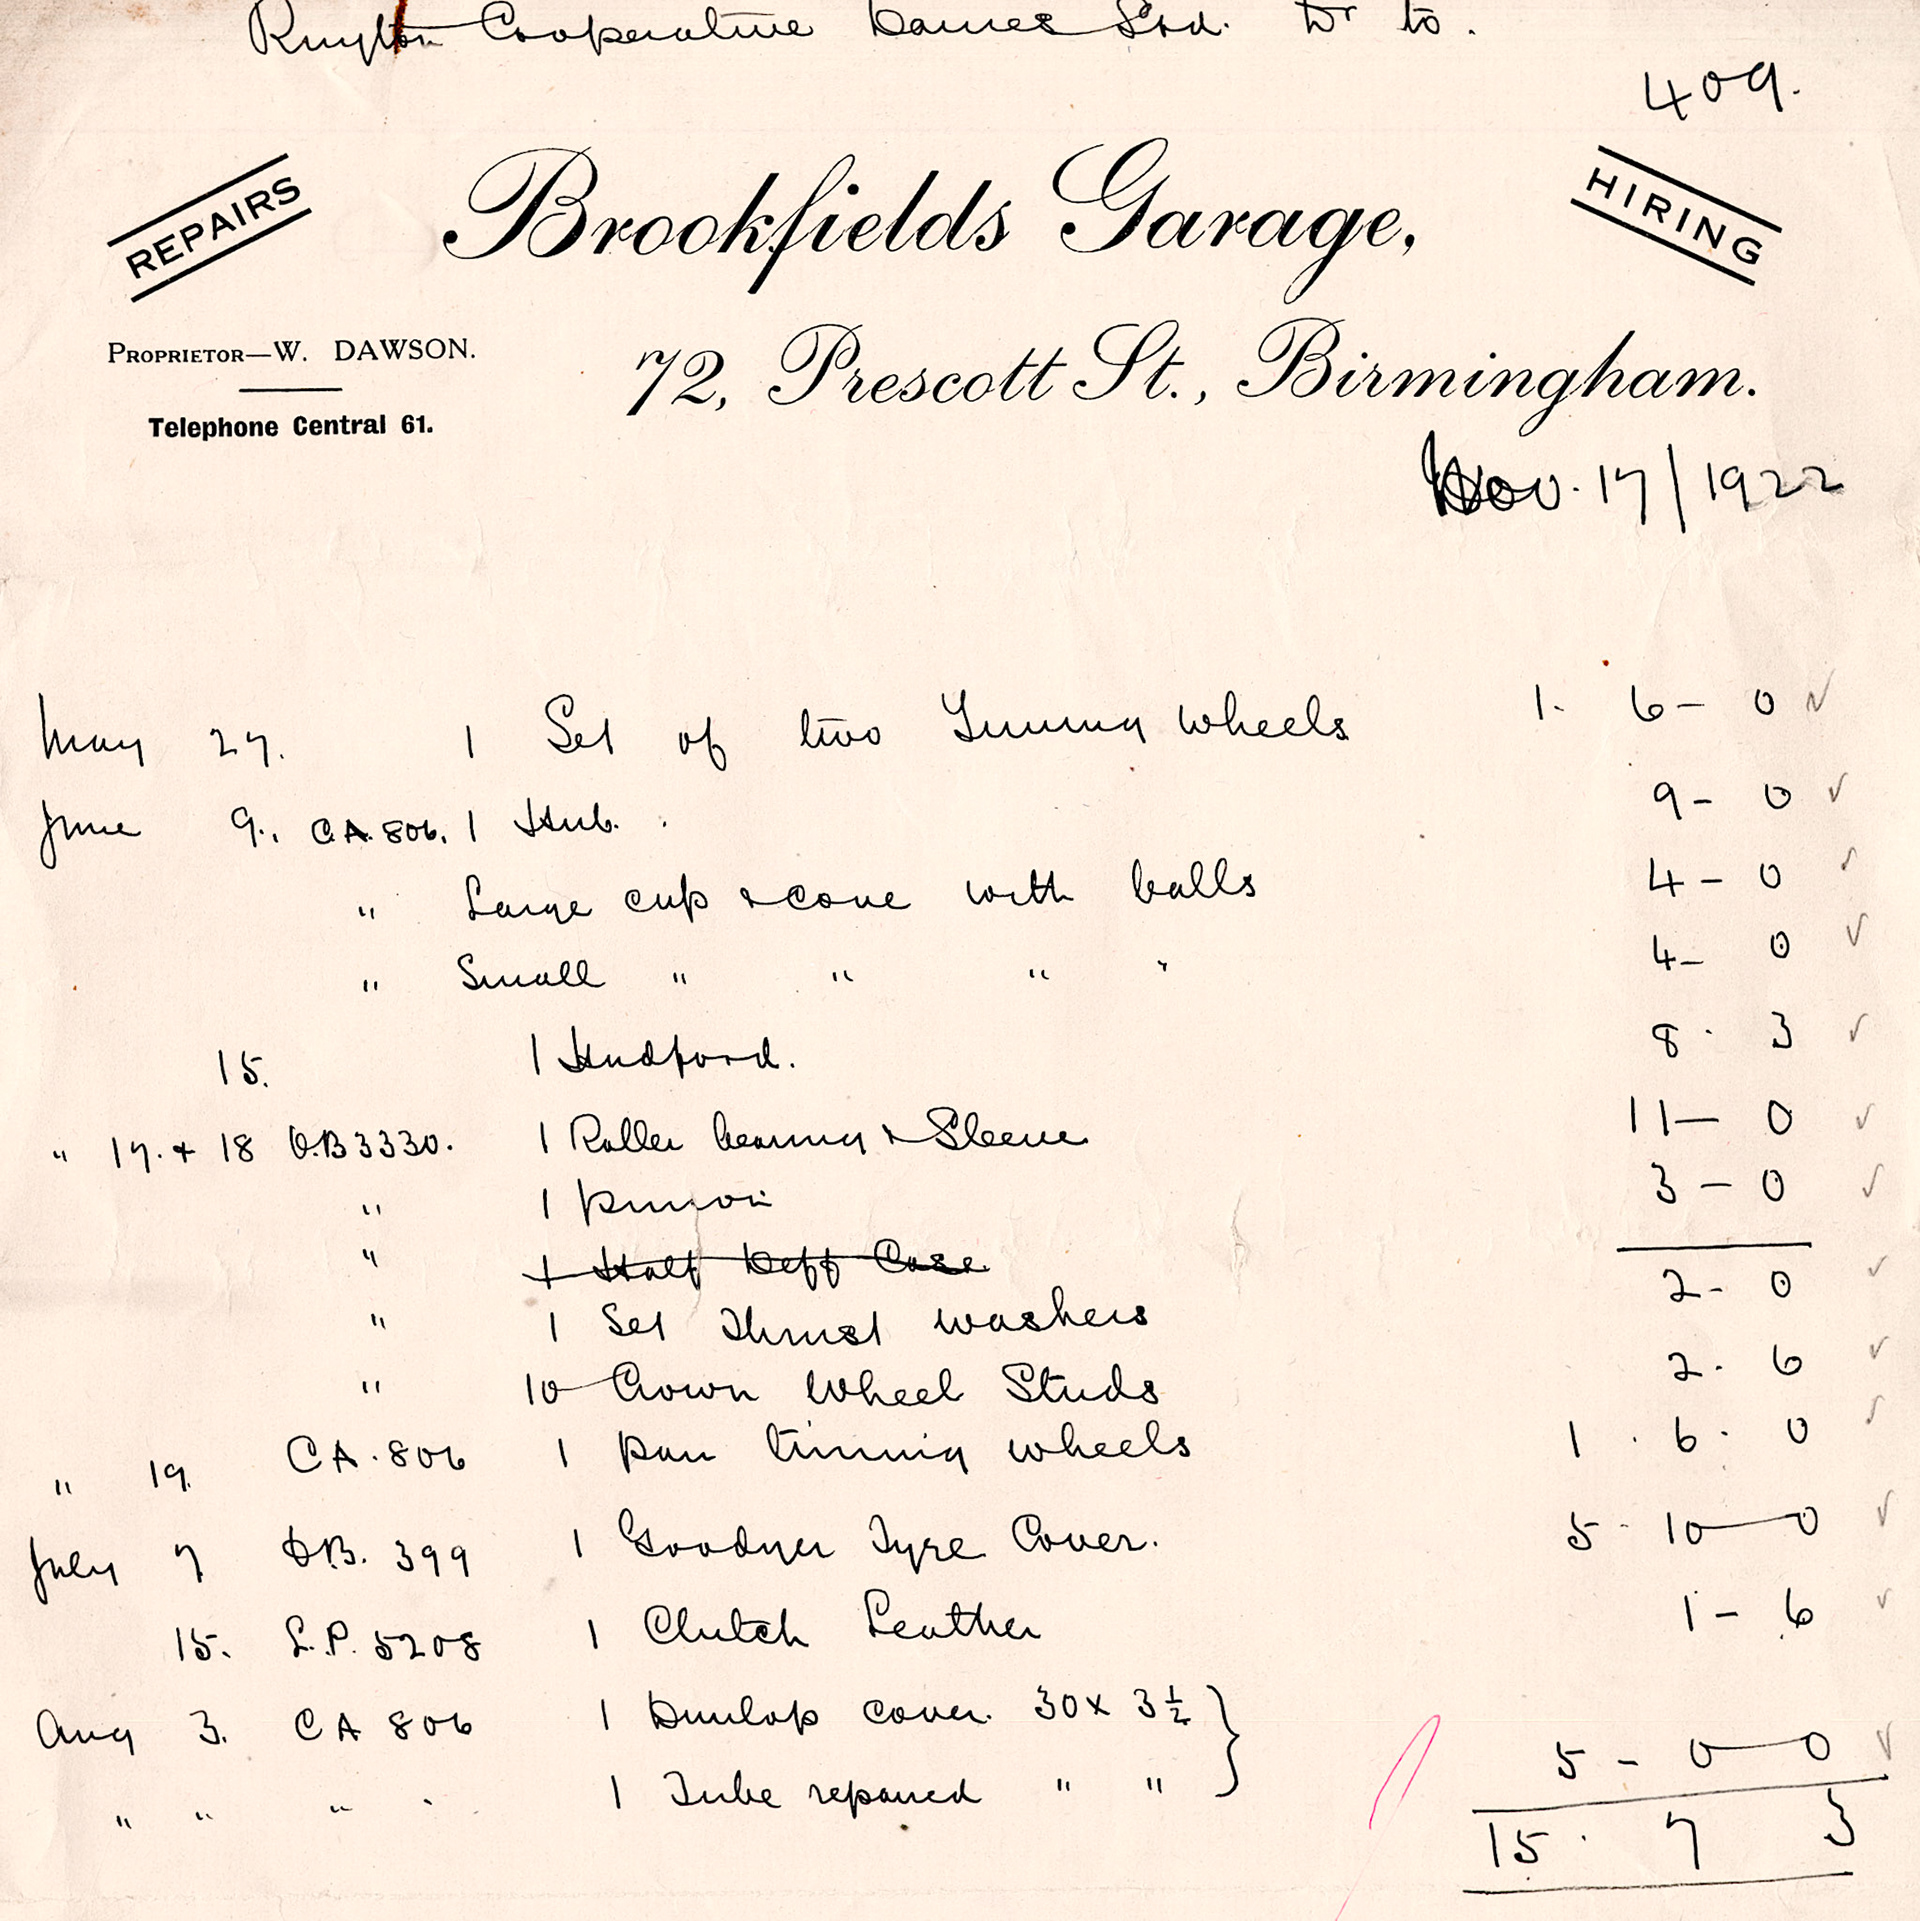 Ruyton Cooperative Dairies Ltd. Dr to.
409.
REPAIRS
Brookfields Garage,
HIRING
PROPRIETOR—W. DAWSON.
72, Prescott St., Birmingham.
Telephone Central 61.
Nov. 17/1922
May 27. 1 Set of two Timing Wheels 1. 6 - 0
June 9. CA. 806. 1 Hub. 9 - 0
" Large cup & cone with balls 4 - 0
" Small " " " " 4 - 0
15. 1 Hudford. 8 . 3
" 17. & 18 O.B 3330. 1 Roller bearing & Sleeve 11 - 0
" 1 pinion 3 - 0
" 1 Half Deff Case
" 1 Set Thrust washers 2 - 0
" 10 Crown Wheel Studs 2 . 6
" 19 CA. 806 1 pair timing wheels 1 . 6 . 0
July 7 399 1 Goodyer Tyre Cover. 5 - 10 - 0
15. L.P. 5208 1 Clutch Leather 1 - 6
Aug 3. CA 806 1 Dunlop cover. 30 x 3½
" " " " 1 Tube repaired " " 5 - 0 - 0
15 . 7 3